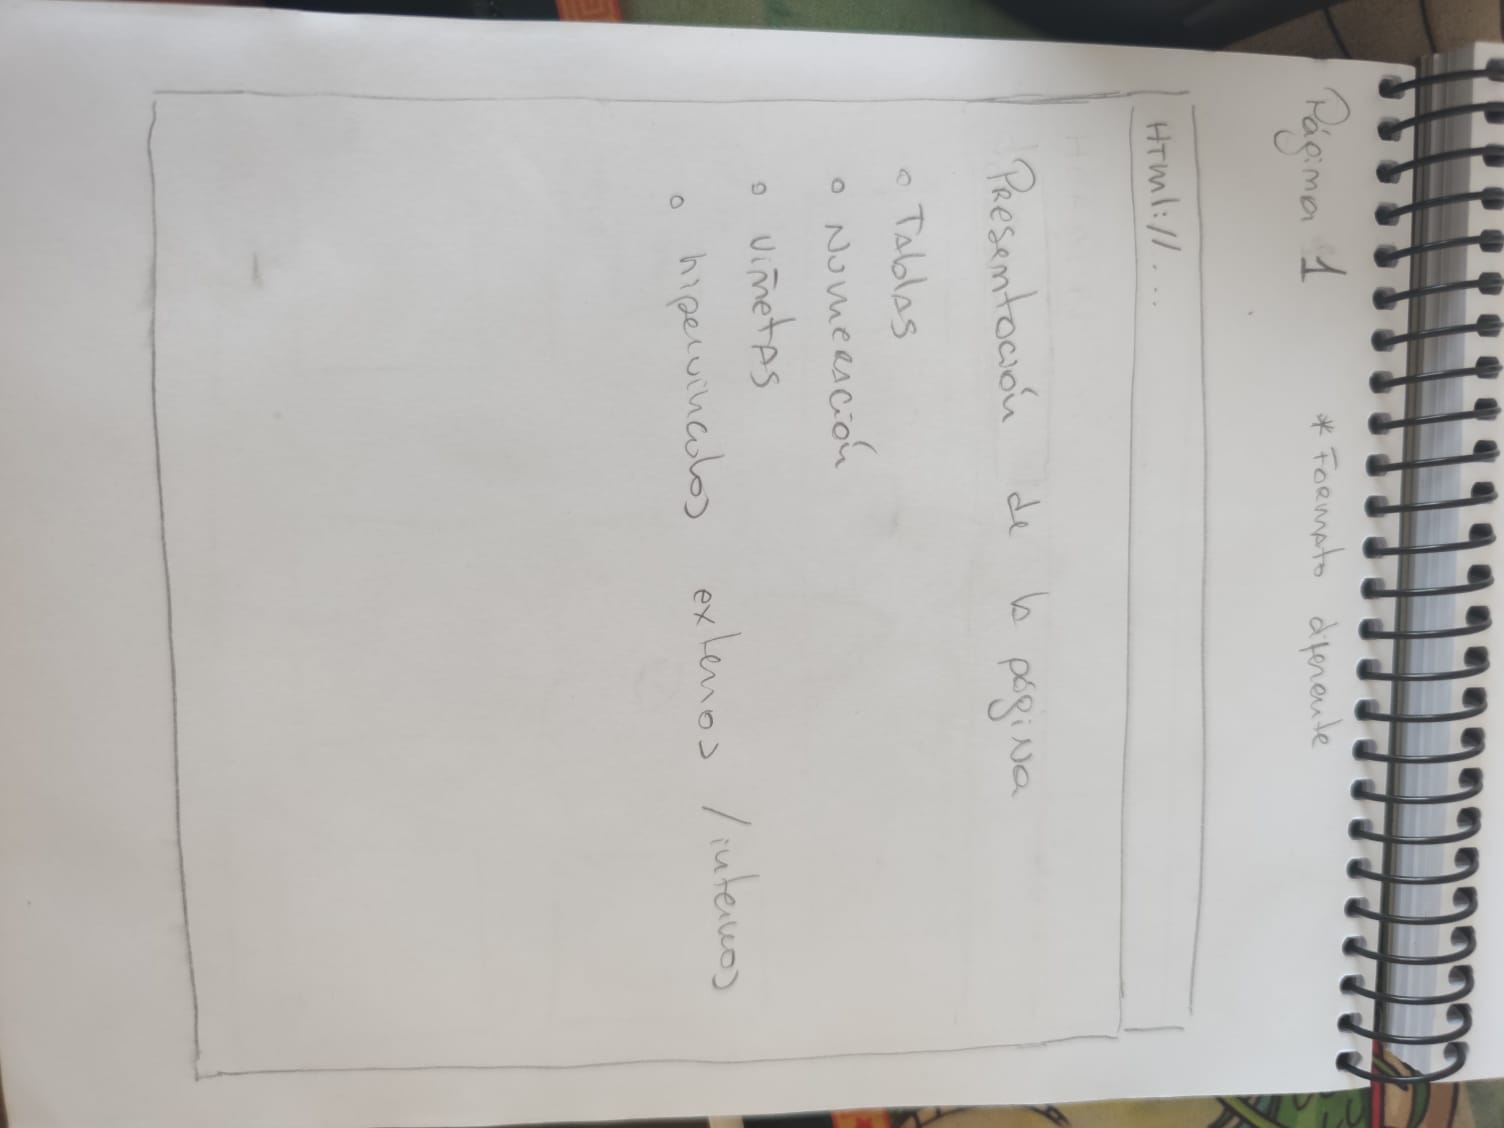 Página 1 * Formato diferente
Html://...
Presentación de la página
Tablas
Numeración
Viñetas
hipervinculos externos / internos